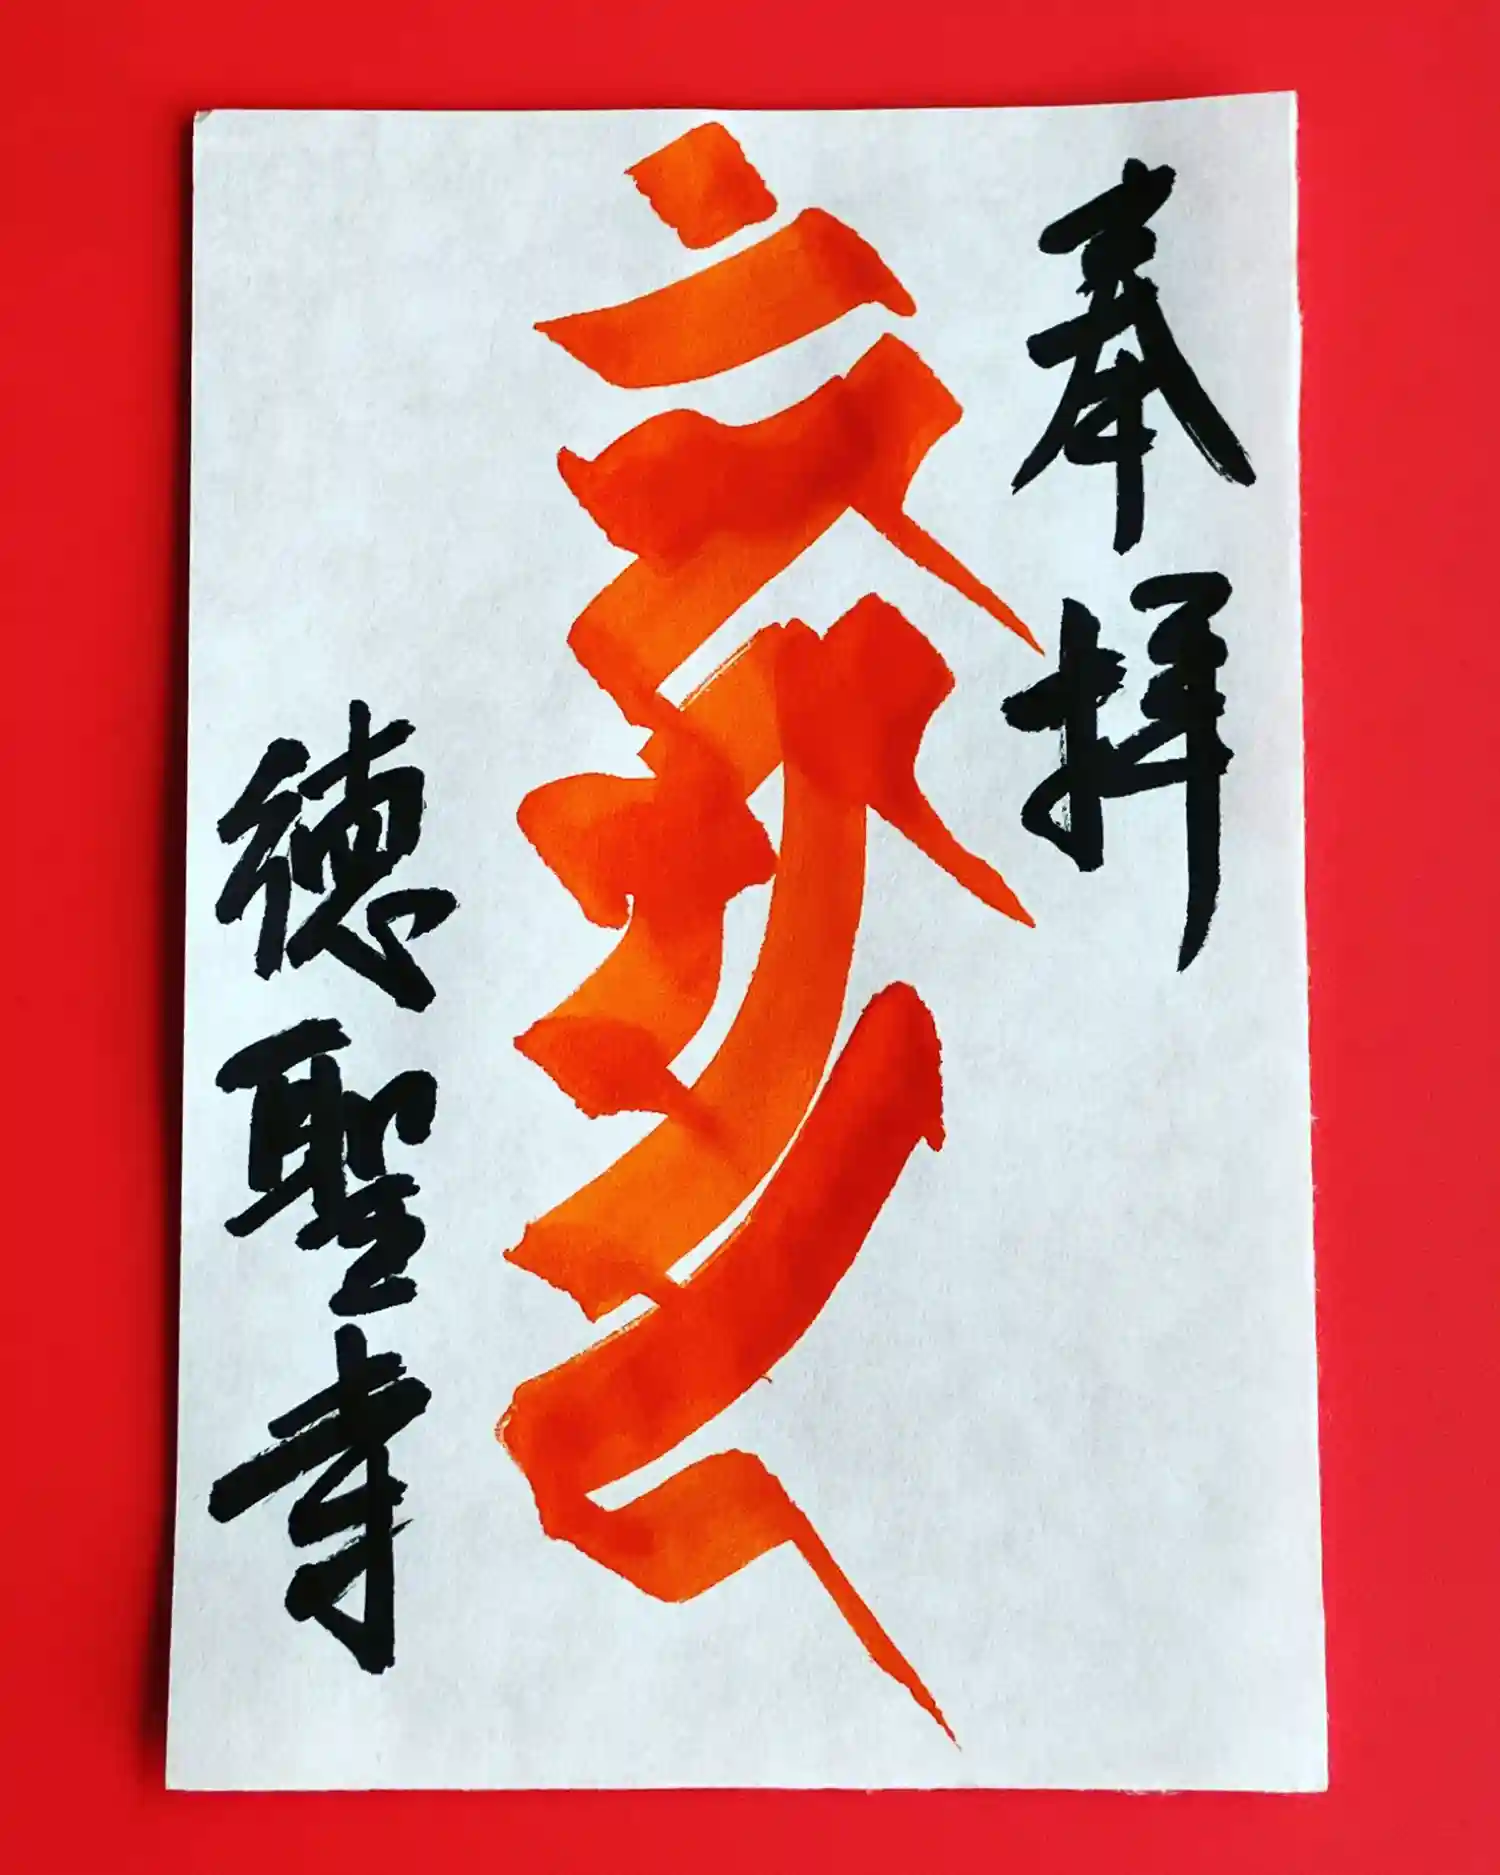 奉拝
徳聖寺